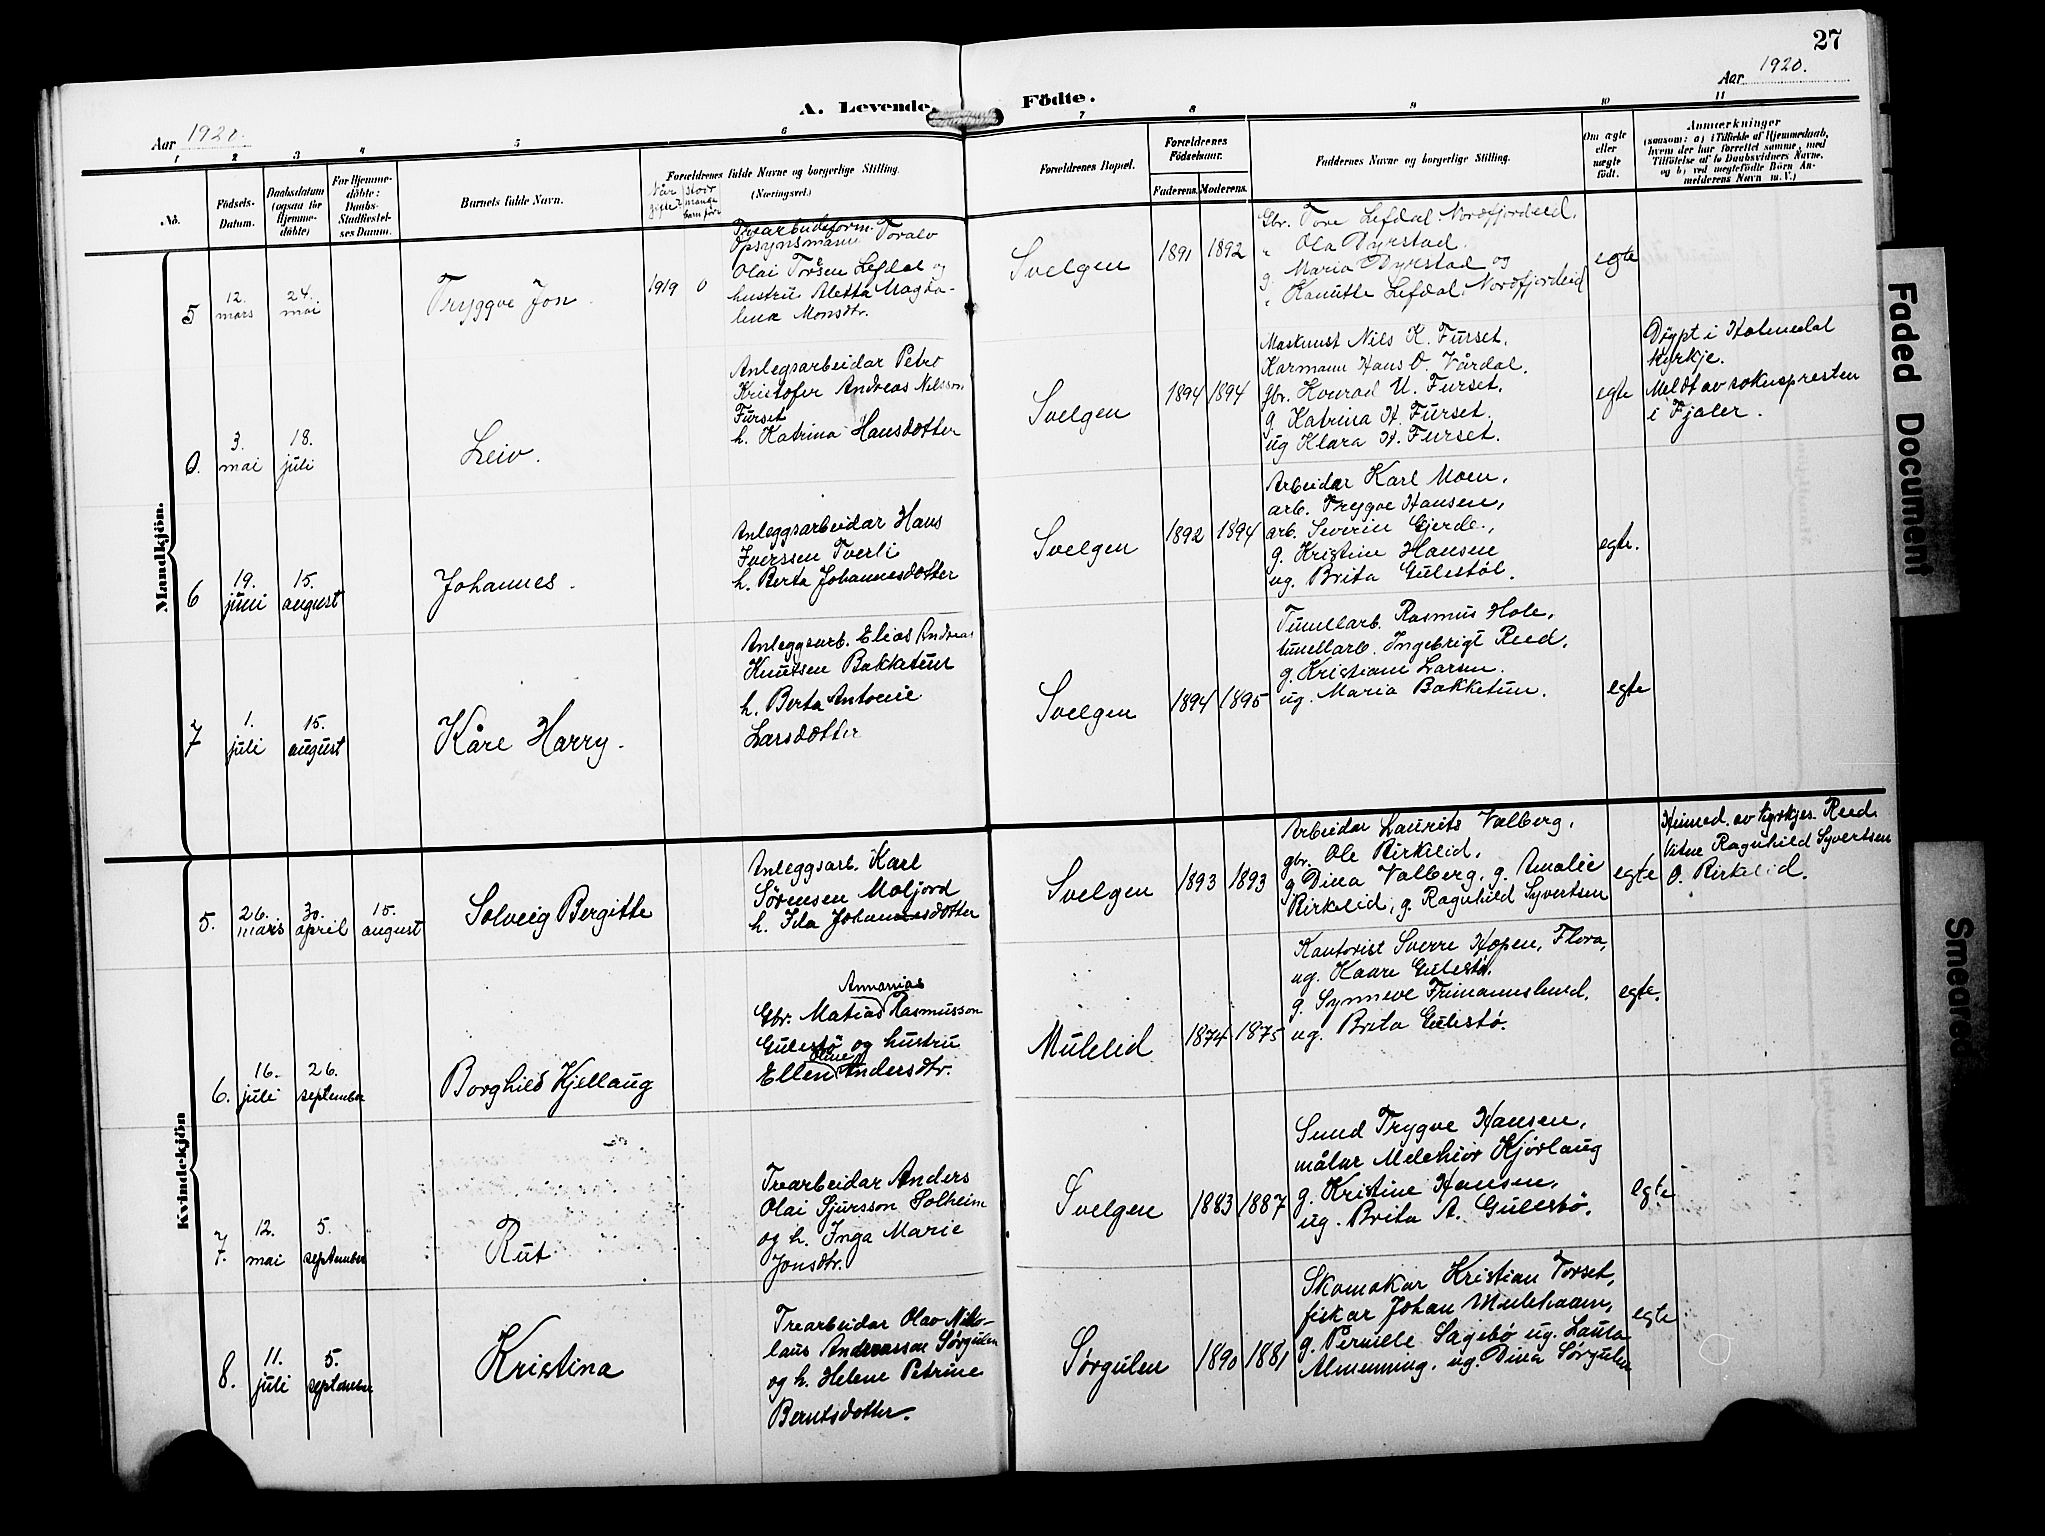 27
Aar 1920.
A. Levende Födte.
Aar 1920.
1 2 3 4 5 6 7 8 9 10 11
No.
Födsels-
Datum.
Daabsdatum
(ogsaa for
Hjemme-
döbte)
For Hjemme-
döbte:
Daabs-
Stadfæstel-
ses Datum.
Barnets fulde Navn.
Forældrenes fulde Navne og borgerlige Stilling.
(Næringsvei)
Når
gifte?
stort
mange
barn før?
Forældrenes Bopæl.
Forældrenes
Födselsaar.
Faderens. Moderens.
Faddernes Navne og borgerlige Stilling.
Om ægte
eller
uægte
födt.
Anmærkninger
(saasom: a) i Tilfælde af Hjemmedaab,
hvem der har forrettet samme, med
Tilföielse af to Daabsvidners Navne,
og b) ved uægtefödte Börn An-
melderens Navn m. V.)
Mandkjön.
5
12.
mars
24.
mai
Tryggve Jon
1919 0
Trearbeidsform.
Opsynsmann Toralv
Olai Tørsen Lefdal og
hustru Aletta Magda-
lena Monsdtr.
Svelgen
1891 1892
Gbr. Tore Lefdal Nordfjordeid.
" Ola Dyrstad.
g. Maria Dyrstad og
" Hanutte Lefdal, Nordfjordeid
egte
0.
3.
mai
18.
juli
Leiv.
Anlegsarbeidar Petro
Kristofer Andreas Nilsson
Furset
h. Katrina Hansdotter
Svelgen
1894 1894
Maskinist Nils K. Furset.
Karmann Hans O. Vårdal.
gbr. Konrad U. Furset.
g. Katrina H. Furset.
ug Klara H. Furset.
egte
Døypt i Holmedal
kyrkje.
Meldt av soknepresten
i Fjaler.
6
19.
juni
15.
august
Johannes.
Anleggsarbeidar Hans
Iverssen Tverli
h. Berta Johannesdotter
Svelgen
1892 1894
Arbeidar Karl Moen,
arb. Trygve Hansen,
arb. Severin Gjerde,
g. Kristine Hansen
ug. Brita Gulestøl.
egte.
7
1.
juli
15.
august
Kåre Harry.
Anleggsarb. Elias Andreas
Knutsen Bakketun
h. Berta Antonie
Larsdotter
Svelgen
1894 1895
Tunellarb. Rasmus Hole,
tunellarb. Ingebrigt Reed,
g. Kristiane Larsen.
ug. Maria Bakketun.
egte
Kvindekjön
5.
26.
mars
30.
april
15.
august
Solveig Bergitte
Anleggsarb. Karl
Sørensen Moljord
h. Ida Johannesdotter
Svelgen
1893 1893
Arbeidar Laurits Valberg,
gbr. Ole Birkelid,
g. Dina Valberg, g. Amalie
Birkelid, g. Ragnhild Syvertsen
egte
Heimed. av kyrkjes. Reed
Vitne Ragnhild Syvertsen
O. Birkelid.
6.
16.
juli
26.
september
Borghild Kjellaug
Annanias
Gbr. Matias Rasmusson
Gulestø og hustru
Oline
Ellen Andersdtr.
Mulelid
1874 1875
Kontorist Sverre Hopen, Flora,
ug. Kaare Gulestø,
g. Synneve Frimannslund,
ug. Brita Gulestø.
egte.
7.
12.
mai
5.
september
Rut
Trearbeidar Anders
Olai Sjursson Solheim
og h. Inga Marie
Jonsdtr.
Svelgen
1883 1887
Smed Trygve Hansen,
målar Melchior Kjørlaug
g. Kristine Hansen,
ug. Brita A. Gulestø.
egte
8.
11.
juli
5.
september
Kristina
Trearbeidar Olav Niko-
laus Andreasson Sørgulen
og h. Helene Petrine
Berntsdotter.
Sørgulen
1890 1881
Skomakar Kristian Torset,
fiskar Johan Mulehamn,
g. Pernille Sagebø ug. Laura
Almenning, ug. Dina Sørgulen
egte
Faded Document
Smeared